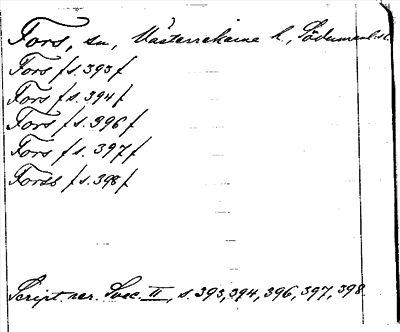 Fors, sn, Västerrekarne h., Södermanl. l.
Fors /s. 393/
Fors /s. 394/
Fors /s. 396/
Fors /s. 397/
Forss /s. 398/
Script. rer. Svec. II, s. 393, 394, 396, 397, 398.